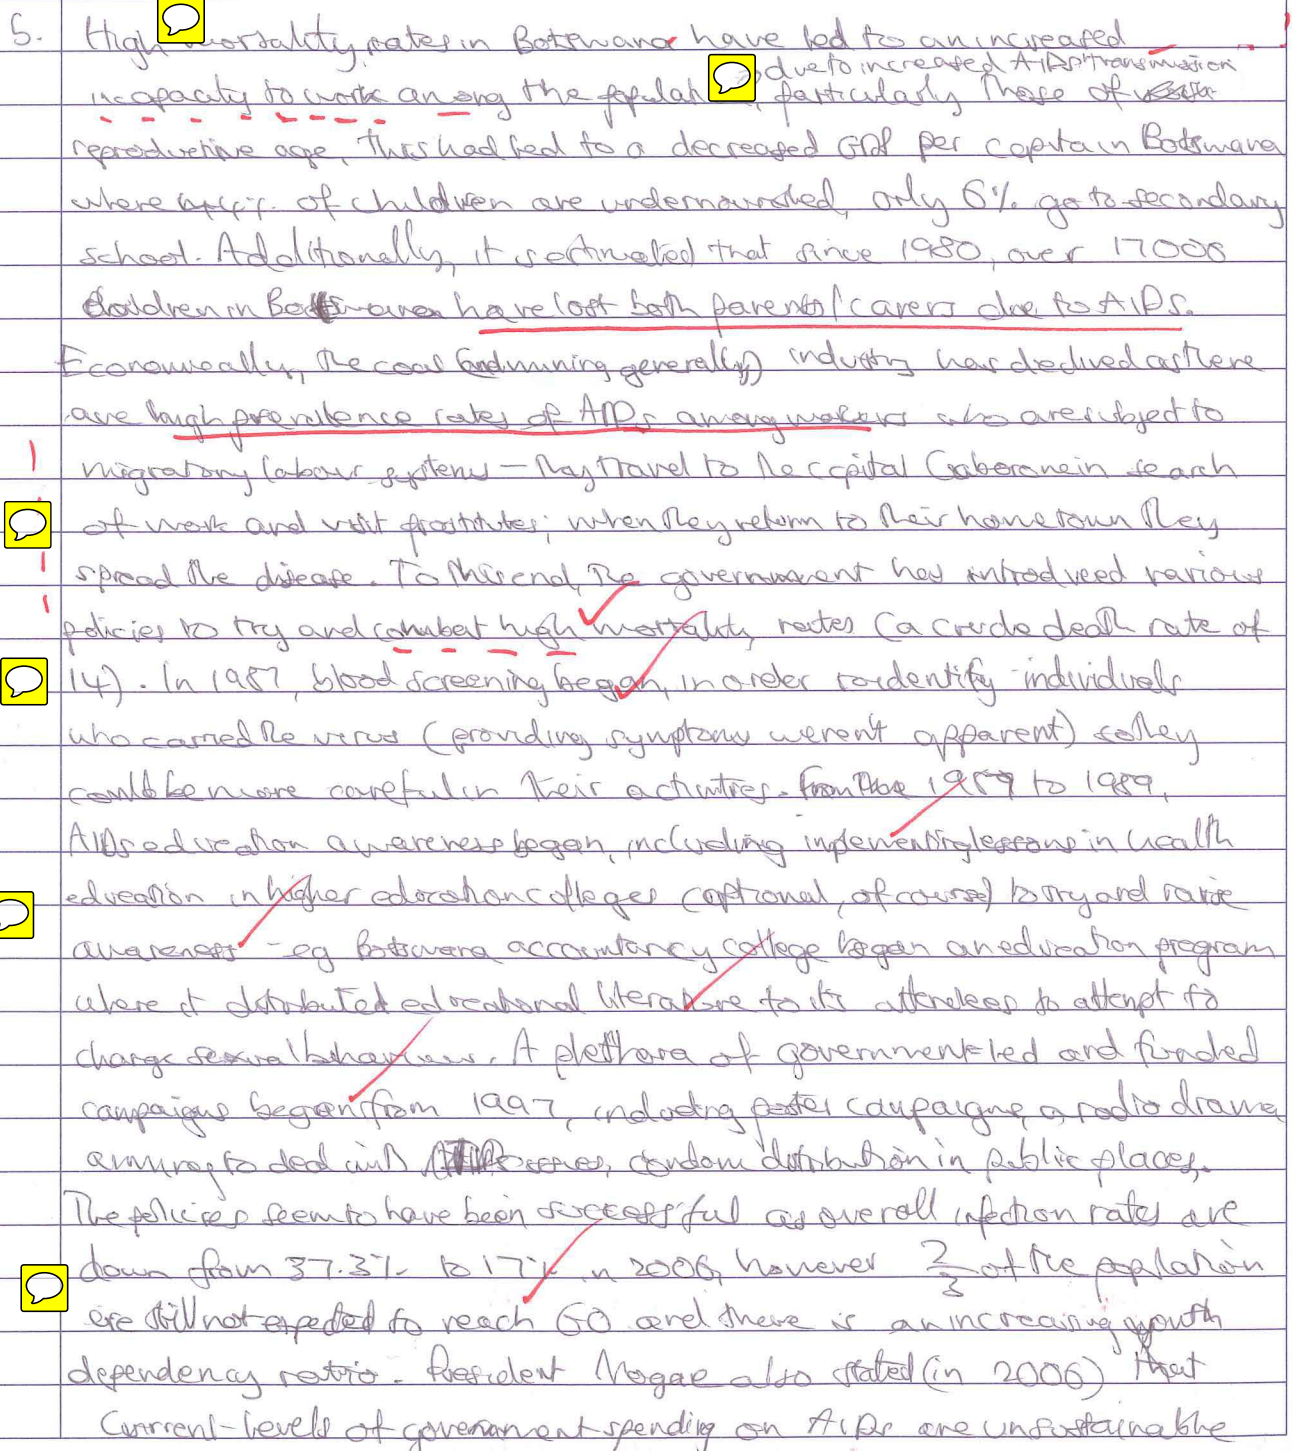 5. High mortality rates in Botswana have led to an increased
due to increased AIDs transmission
incapacity to work among the populat , particularly those of
reproductive age, this had led to a decreased GDP per capita in Botswana
where of children are undernourished, only 6% go to secondary
school. Additionally, it is estimated that since 1980, over 17000
children in Botswana have lost both parents/carers due to AIDs.
Economically, the coal (and mining generally) industry has declined as there
are high prevalence rates of AIDs among workers who are subject to
migratory labour systems - they travel to the capital Gaborone in search
of work and visit prostitutes; when they return to their hometown they
spread the disease. To this end, the government has introduced various
policies to try and combat high mortality rates (a crude death rate of
14). In 1987, blood screening began, in order to identify individuals
who carried the virus (providing symptoms weren't apparent) so they
could be more careful in their activities. From 1987 to 1989,
AIDs education awareness began, including implementing lessons in health
education in higher education colleges (optional, of course) to try and raise
awareness - eg Botswana accountancy college began an education program
where it distributed educational literature to its attendees to attempt to
change sexual behaviours. A plethora of government-led and funded
campaigns began from 1997, including poster campaigns, a radio drama
aiming to deal with issues, condom distribution in public places.
The policies seem to have been successful as overall infection rates are
down from 37.3% to 17% in 2006, however 2/3 of the population
are still not expected to reach 60 and there is an increasing youth
dependency ratio. President Mogae also stated (in 2006) that
Current-levels of government spending on AIDs are unsustainable